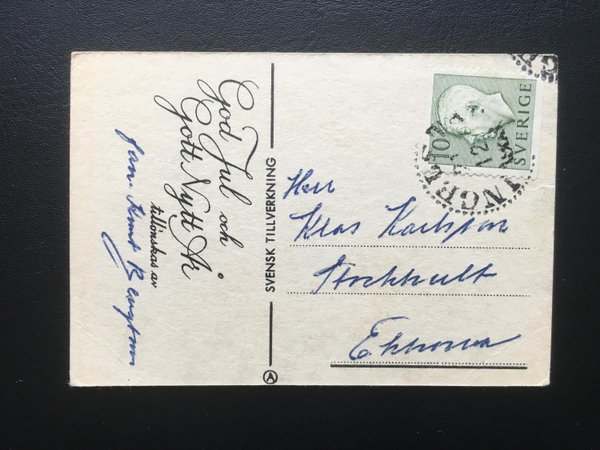 God Jul och
Gott Nytt År
tillönskas av
Bengtsson
SVENSK TILLVERKNING
A
SVERIGE
10
Herr
Klas Karlsson
Stockhult